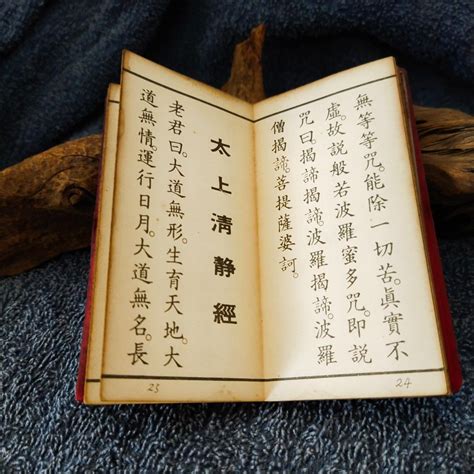 無等等咒。能除一切苦。眞實不
虛。故說般若波羅蜜多咒。即說
咒曰。揭諦揭諦。波羅揭諦。波羅
僧揭諦。菩提薩婆訶。
24
太上清靜經
老君曰。大道無形。生育天地。大
道無情。運行日月。大道無名。長
23